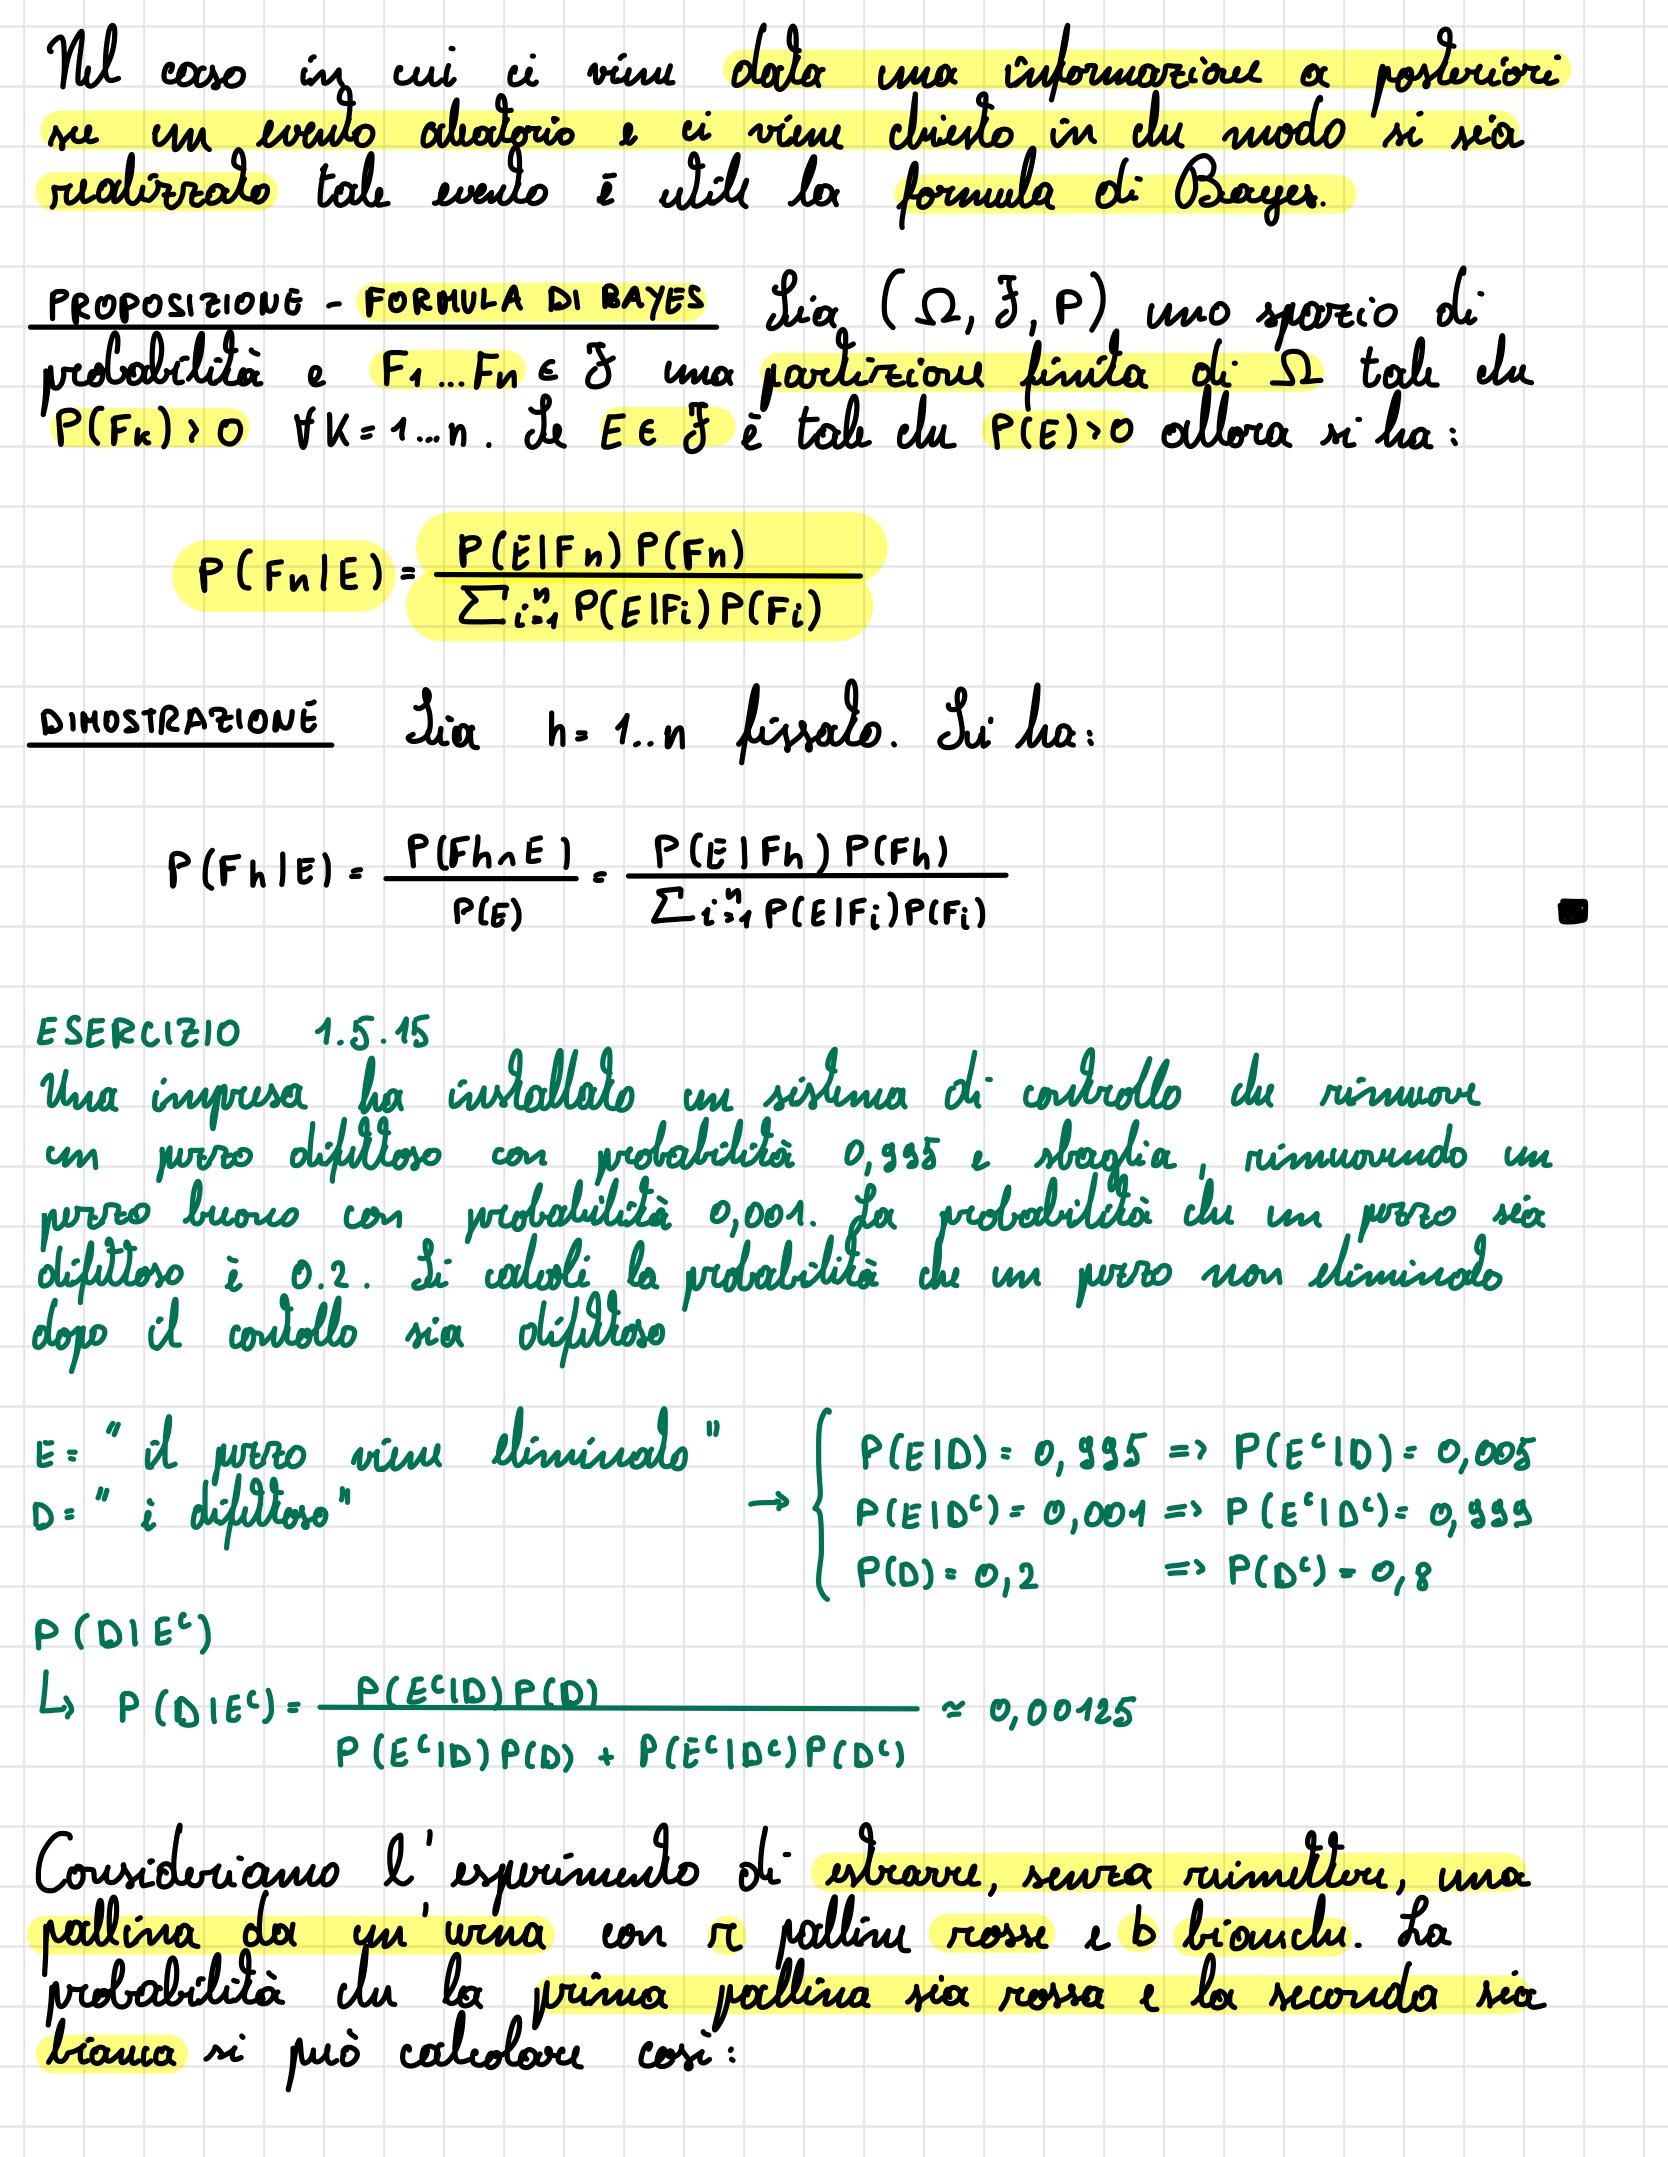 Nel caso in cui ci viene data una informazione a posteriori
su un evento aleatorio e ci viene chiesto in che modo si sia
realizzato tale evento è utile la formula di Bayes.
PROPOSIZIONE - FORMULA DI BAYES Sia (Ω, F, P) uno spazio di
probabilità e F1...Fn ∈ F una partizione finita di Ω tale che
P(Fk) > 0 ∀K=1...n. Se E ∈ F è tale che P(E)>0 allora si ha:
P(Fn|E) = P(E|Fn) P(Fn) / ∑ i=1 n P(E|Fi) P(Fi)
DIMOSTRAZIONE Sia h= 1..n fissato. Si ha:
P(Fh|E) = P(Fh∩E) / P(E) = P(E|Fh) P(Fh) / ∑ i=1 n P(E|Fi)P(Fi)
■
ESERCIZIO 1.5.15
Una impresa ha installato un sistema di controllo che rimuove
un pezzo difettoso con probabilità 0,995 e sbaglia, rimuovendo un
pezzo buono con probabilità 0,001. La probabilità che un pezzo sia
difettoso è 0.2. Si calcoli la probabilità che un pezzo non eliminato
dopo il contollo sia difettoso
E= " il pezzo viene eliminato "
D= " è difettoso"
→ { P(E|D) = 0,995 => P(Eᶜ|D) = 0,005
P(E|Dᶜ) = 0,001 => P(Eᶜ|Dᶜ) = 0,999
P(D) = 0,2 => P(Dᶜ) = 0,8
P(D|Eᶜ)
↳ P(D|Eᶜ) = P(Eᶜ|D) P(D) / P(Eᶜ|D) P(D) + P(Eᶜ|Dᶜ) P(Dᶜ) ≈ 0,00125
Consideriamo l'esperimento di estrarre, senza rimettere, una
pallina da un'urna con r palline rosse e b bianche. La
probabilità che la prima pallina sia rossa e la seconda sia
bianca si può calcolare così: